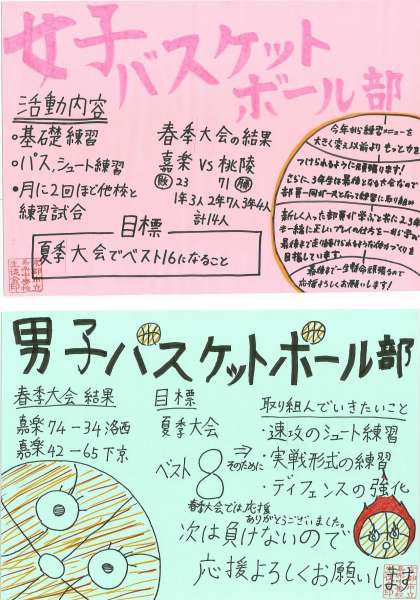 女子バスケット
ボール部
活動内容
・基礎練習
・パス,シュート練習
・月に2回ほど他校と
練習試合
春季大会の結果
嘉楽 vs 桃陵
敗 23 71 勝
1年3人2年7人3年4人
計14人
目標
夏季大会でベスト16になること
今年から練習メニューを
大きく変え以前よりもっと力を
つけられるように頑張ります!
さらに3年生は最後となる大会なので
部員一同が一丸となって練習に取り組み
新しく入った部員が学ぶと共に2,3年
最後まで一生懸命頑張るので
応援よろしくお願いします!
男子バスケットボール部
春季大会 結果
嘉楽 74-34 洛西
嘉楽 42-65 下京
目標
夏季大会
ベスト8
⇒
そのために
取り組んでいきたいこと
・速攻のシュート練習
・実戦形式の練習
・ディフェンスの強化
春季大会では応援
ありがとうございました。
次は負けないので
応援よろしくお願いします